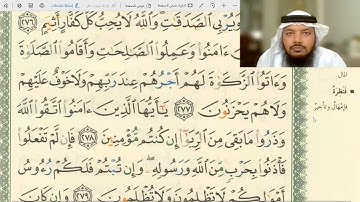 وَيُرْبِى ٱلصَّدَقَٰتِ وَٱللَّهُ لَا يُحِبُّ كُلَّ كَفَّارٍ أَثِيمٍ ٢٧٦
ءَامَنُوا۟ وَعَمِلُوا۟ ٱلصَّٰلِحَٰتِ وَأَقَامُوا۟ ٱلصَّلَوٰةَ
وَءَاتَوُا۟ ٱلزَّكَوٰةَ لَهُمْ أَجْرُهُمْ عِندَ رَبِّهِمْ وَلَا خَوْفٌ عَلَيْهِمْ
وَلَا هُمْ يَحْزَنُونَ ٢٧٧ يَٰٓأَيُّهَا ٱلَّذِينَ ءَامَنُوا۟ ٱتَّقُوا۟ ٱللَّهَ
وَذَرُوا۟ مَا بَقِىَ مِنَ ٱلرِّبَوٰٓا۟ إِن كُنتُم مُّؤْمِنِينَ ٢٧٨ فَإِن لَّمْ تَفْعَلُوا۟
فَأْذَنُوا۟ بِحَرْبٍ مِّنَ ٱللَّهِ وَرَسُولِهِۦ وَإِن تُبْتُمْ فَلَكُمْ رُءُوسُ
أَمْوَٰلِكُمْ لَا تَظْلِمُونَ وَلَا تُظْلَمُونَ ٢٧٩ وَإِن كَانَ
المال
فَنَظِرَةٌ
فإمهال وتأخير